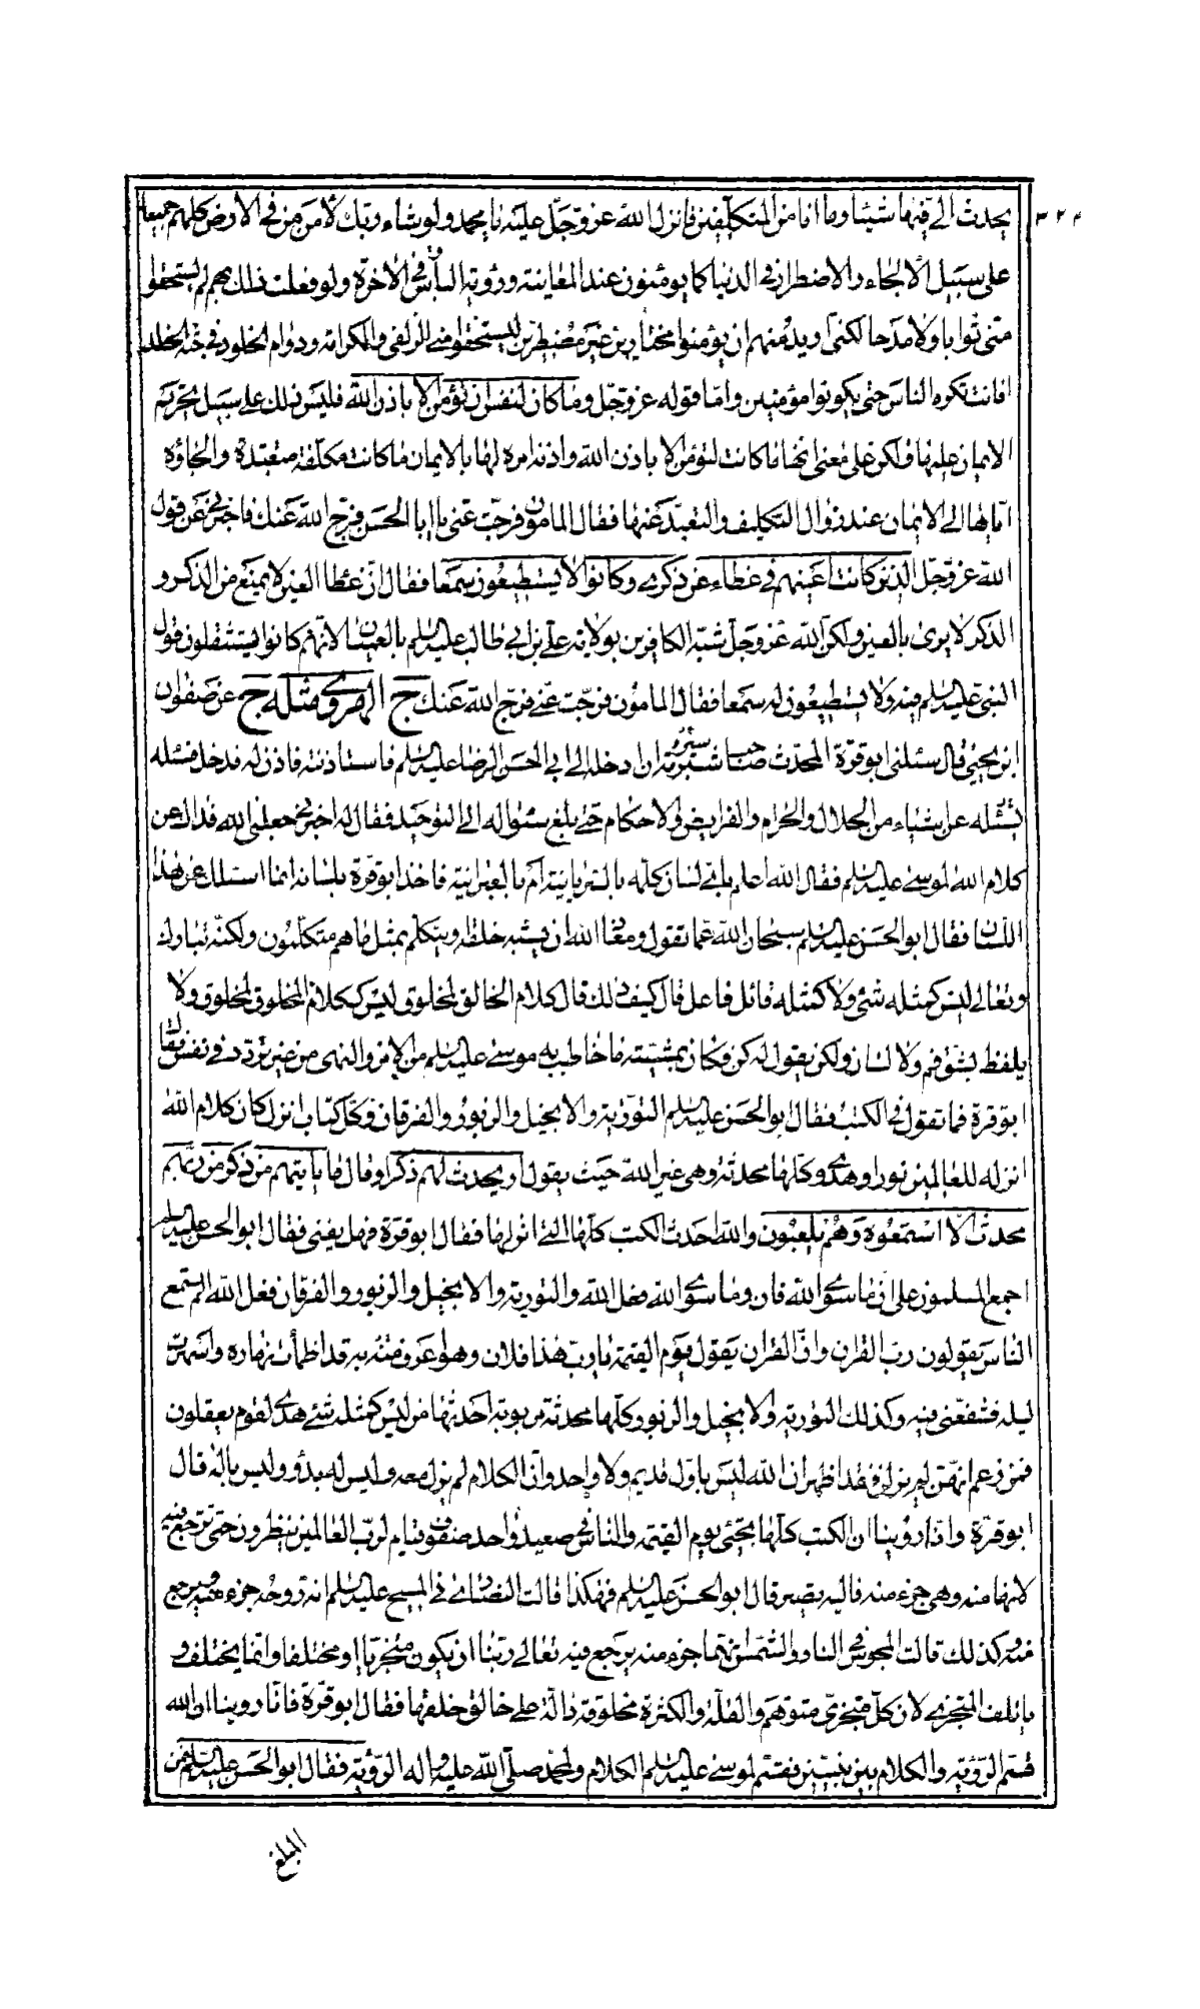 ٣٢٤
يحدث الي فيها شيئا وما انا من المتكلفين فانزل الله عز وجل عليه يا محمد ولو شاء ربك لامن من في الارض كلهم جميعا
على سبيل الالجاء والاضطرار في الدنيا كما يومنون عند المعاينة ورؤية الباس في الاخرة ولو فعلت ذلك بهم لم يستحقوا
منى ثوابا ولا مدحا لكنى اريد منهم ان يؤمنوا مختارين غير مضطرين ليستحقوا منى الزلفى والكرامة ودوام الخلود في جنة الخلد
افانت تكره الناس حتى يكونوا مؤمنين واما قوله عز وجل وما كان لنفس ان تؤمن الا باذن الله فليس ذلك على سبيل تحريم
الايمان عليها ولكن على معنى انها ما كانت لتؤمن الا باذن الله واذنه امره لها بالايمان ما كانت مكلفة متعبدة والجاؤه
اياها الى الايمان عند زوال التكليف والتعبد عنها فقال المامون فرجت عنى يا ابا الحسن فرج الله عنك فاخبرنى عن قول
الله عز وجل الذين كانت اعينهم في غطاء عن ذكرى وكانوا لا يستطيعون سمعا فقال ان غطاء العين لا يمنع من الذكر و
الذكر لا يرى بالعين ولكن الله عز وجل شبه الكافرين بولاية على بن ابي طالب عليه السلم بالعميان لانهم كانوا يستثقلون قول
النبى عليه السلم فيه ولا يستطيعون له سمعا فقال المامون فرجت عنى فرج الله عنك ج الهروى مثله ج عن صفوان
ابن يحيى قال سئلنى ابو قرة المحدث صاحب شبرمة ان ادخله الى ابي الحسن الرضا عليه السلم فاستاذنته فاذن له فدخل فسئله
عن اشياء من الحلال والحرام والفرايض والاحكام حتى بلغ سئواله الى التوحيد فقال له اخبرنى جعلنى الله فداك عن
كلام الله لموسى عليه السلم فقال الله اعلم باي لسان كلمه بالسريانية ام بالعبرانية فاخذ ابو قرة بلسانه انما اسئلك عن هذا
اللسان فقال ابو الحسن عليه السلم سبحان الله عما تقول ومعاذ الله ان يشبه خلقه او يتكلم بمثل ما هم متكلمون ولكنه تبارك
وتعالى ليس كمثله شئ ولا كمثله قائل فاعل قال كيف ذلك قال كلام الخالق لمخلوق ليس ككلام المخلوق لمخلوق ولا
يلفظ بشق فم ولا لسان ولكن يقول له كن فكان بمشيته ما خاطب به موسى عليه السلم من الامر والنهى من غير تردد في نفس فقال
ابو قرة فما تقول في الكتب فقال ابو الحسن عليه السلم التورية والانجيل والزبور والفرقان وكل كتاب انزل كان كلام الله
انزله للعالمين نورا وهدى وكلها محدثة وهى غير الله حيث يقول او يحدث لهم ذكرا وقال ما ياتيهم من ذكر من ربهم
محدث الا استمعوه وهم يلعبون والله احدث الكتب كلها التى انزلها فقال ابو قرة فهل يفنى فقال ابو الحسن عليه السلم
اجمع المسلمون على ان ما سوى الله فان وما سوى الله فعل الله والتورية والانجيل والزبور والفرقان فعل الله الم تسمع
الناس يقولون رب القران وان القران يقول يوم القيمة يا رب هذا فلان وهو اعرف منه به قد اظمأت نهاره واسهرت
ليله فشفعنى فيه وكذلك التورية والانجيل والزبور كلها محدثة مربوبة احدثها من ليس كمثله شئ هدى لقوم يعقلون
فمن زعم انهن لم يزلن فقد اظهر ان الله ليس باول قديم ولا واحد وان الكلام لم يزل معه وليس له بدؤ وليس باله قال
ابو قرة وانا روينا ان الكتب كلها تجئ يوم القيمة والناس في صعيد واحد صفوف قيام لرب العالمين ينظرون حتى ترجع فيه
لانها منه وهى جزء منه فاليه تصير قال ابو الحسن عليه السلم فهكذا قالت النصارى في المسيح عليه السلم انه روحه جزء منه ويرجع
فيه وكذلك قالت المجوس في النار والشمس انهما جزء منه يرجع فيه تعالى ربنا ان يكون متجزيا او مختلفا وانما يختلف و
ياتلف المتجزى لان كل متجزى متوهم والقلة والكثرة مخلوقة دالة على خالق خلقها فقال ابو قرة فانا روينا ان الله
قسم الرؤية والكلام بين نبيين فقسم لموسى عليه السلم الكلام ولمحمد صلى الله عليه واله الرؤية فقال ابو الحسن عليه السلم فمن
المبلغ